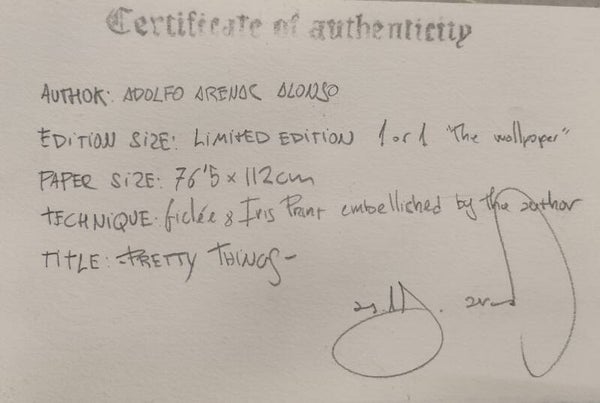 Certificate of authenticity
AUTHOR: ADOLFO ARENAS ALONSO
EDITION SIZE: LIMITED EDITION 1 of 1 "The wallpaper"
PAPER SIZE: 76'5 x 112cm
TECHNIQUE: giclée & Iris Print embelliched by the author
TITLE: -PRETTY THINGS-